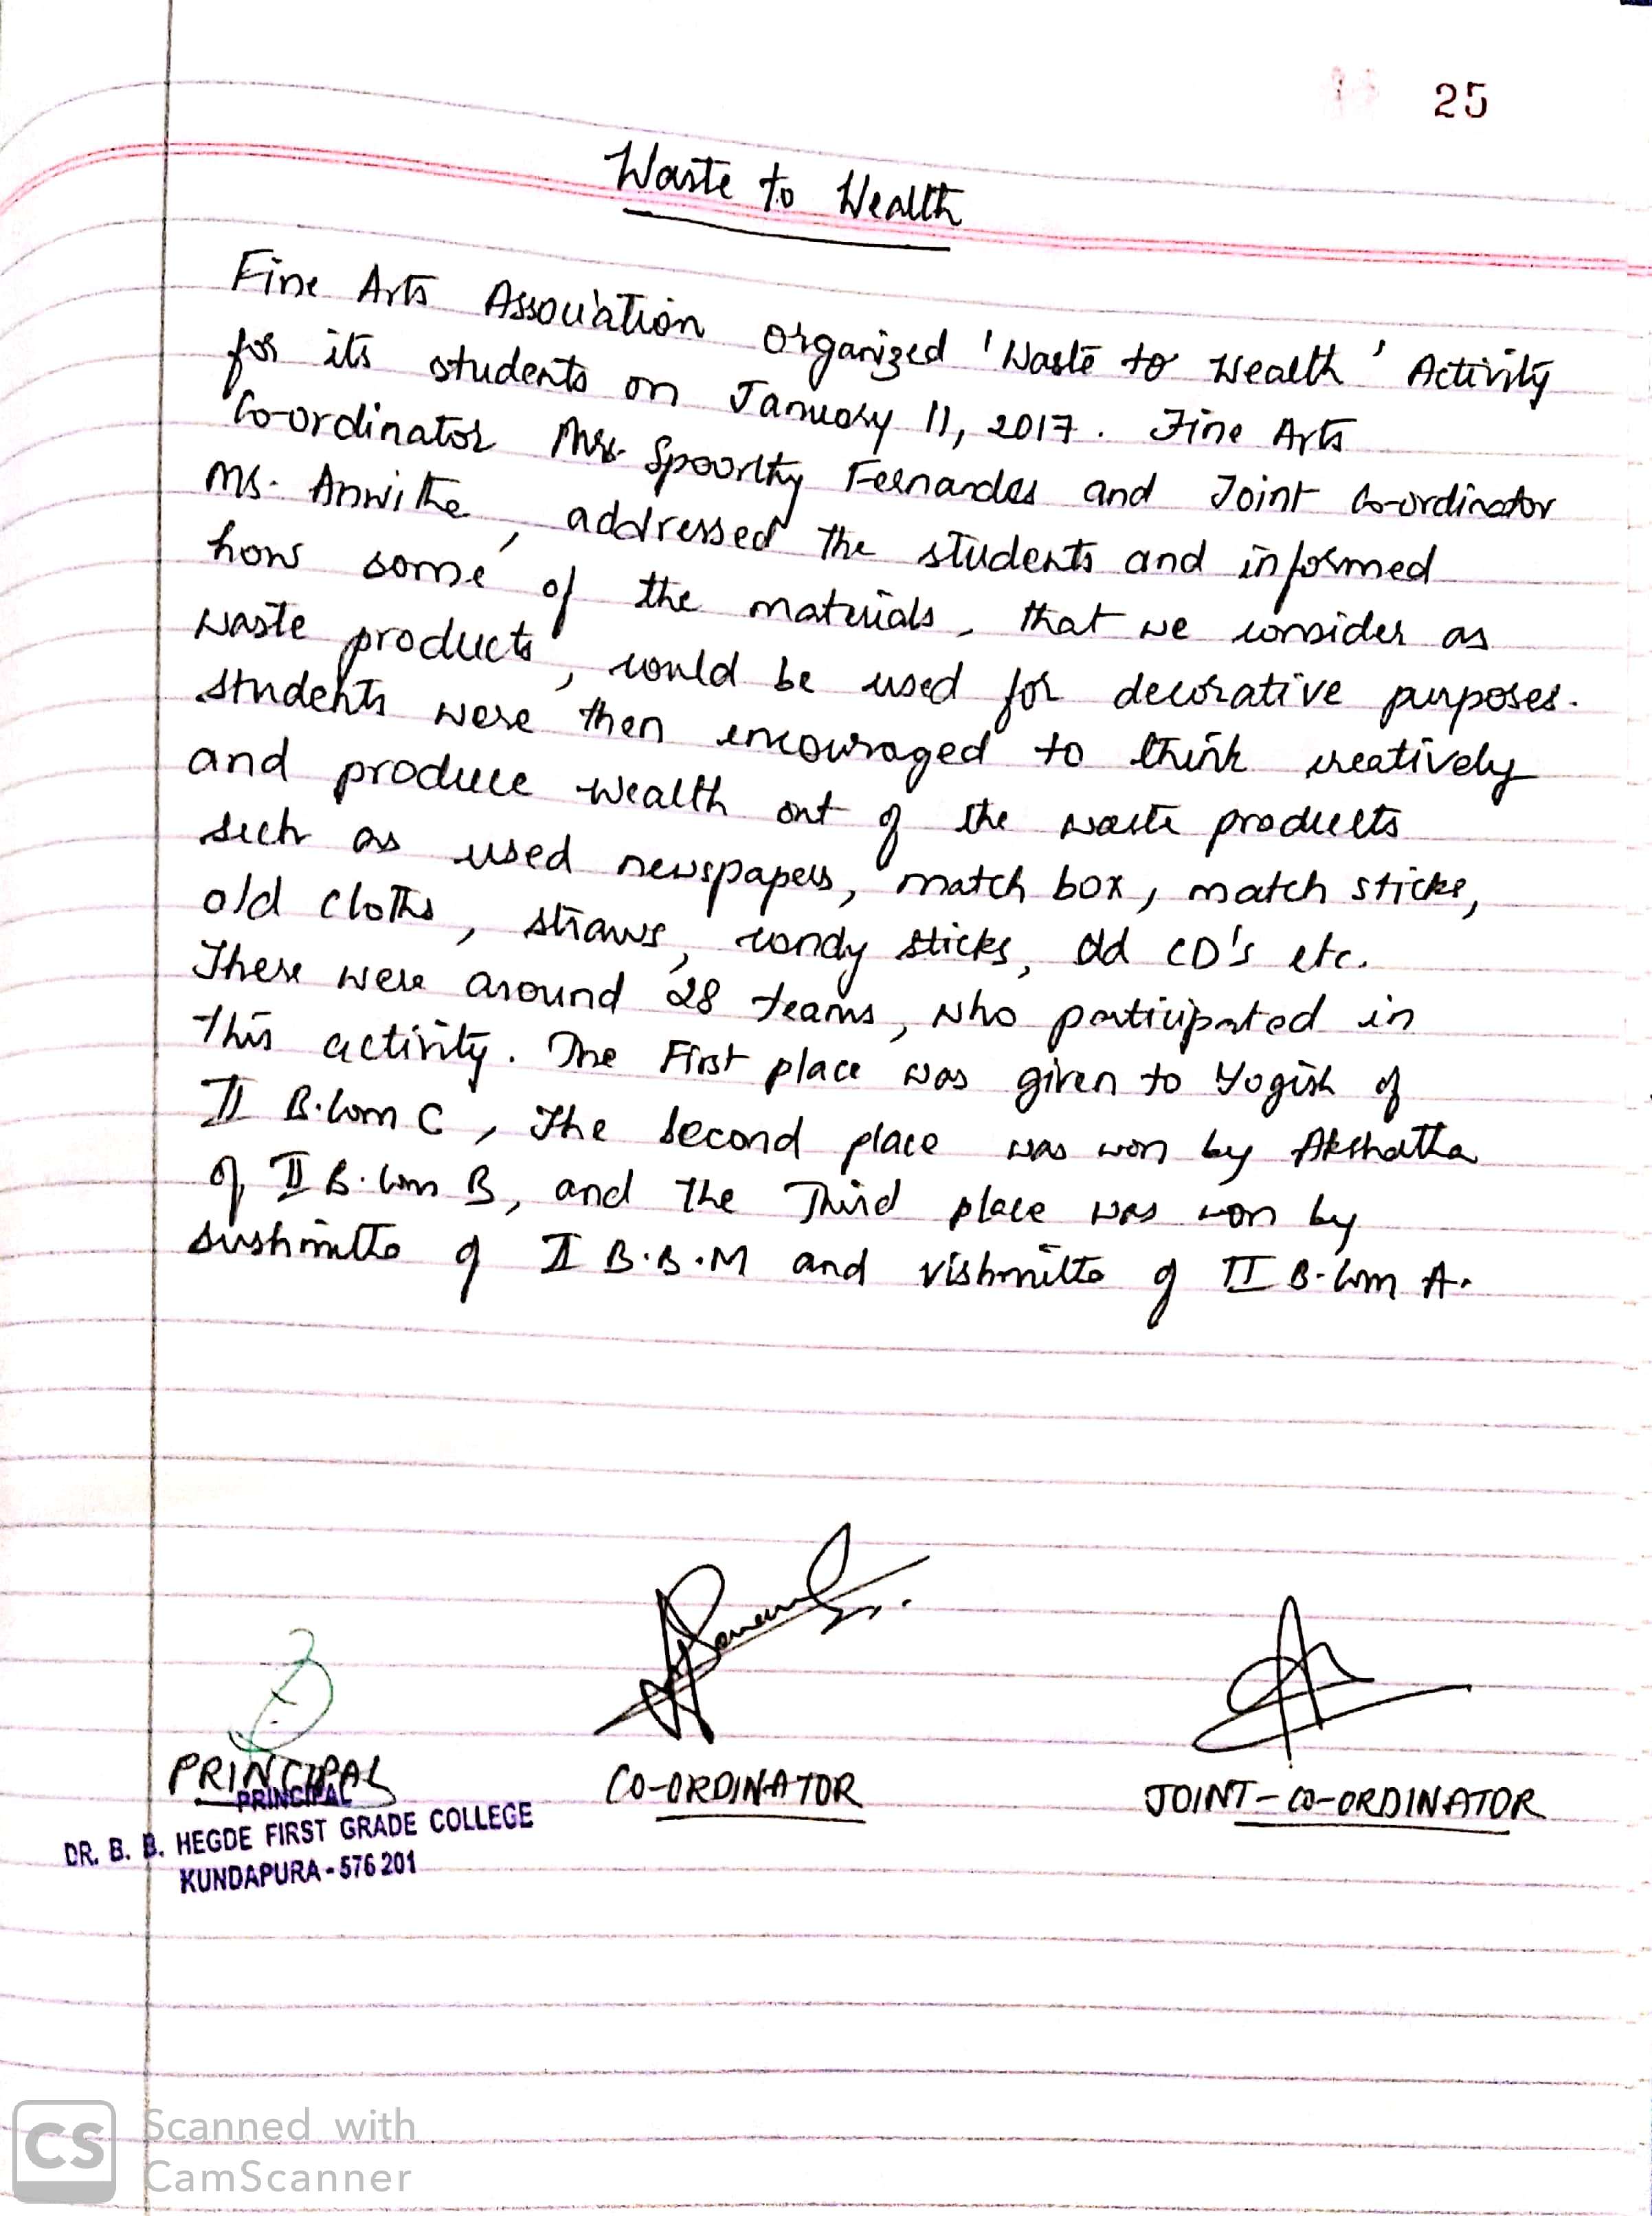 25
Waste to Wealth
Fine Arts Association organized 'Waste to Wealth' Activity
for its students on January 11, 2017. Fine Arts
Co-ordinator Mrs. Spoorthy Fernandes and Joint Co-ordinator
Ms. Anwitha, addressed the students and informed
how some of the materials, that we consider as
waste products, could be used for decorative purposes.
students were then encouraged to think creatively
and produce wealth out of the waste products
such as used newspapers, match box, match sticks,
old cloths, straws, candy sticks, old CD's etc.
There were around 28 teams, who participated in
this activity. The First place was given to Yogish of
II B.Com C, The Second place was won by Akshatha
of II B.Com B, and the Third place was won by
Sushmitha of II B.B.M and Vishmitha of II B.Com A.
PRINCIPAL
CO-ORDINATOR
JOINT-CO-ORDINATOR
PRINCIPAL
DR. B. B. HEGDE FIRST GRADE COLLEGE
KUNDAPURA - 576 201
CS
Scanned with
CamScanner